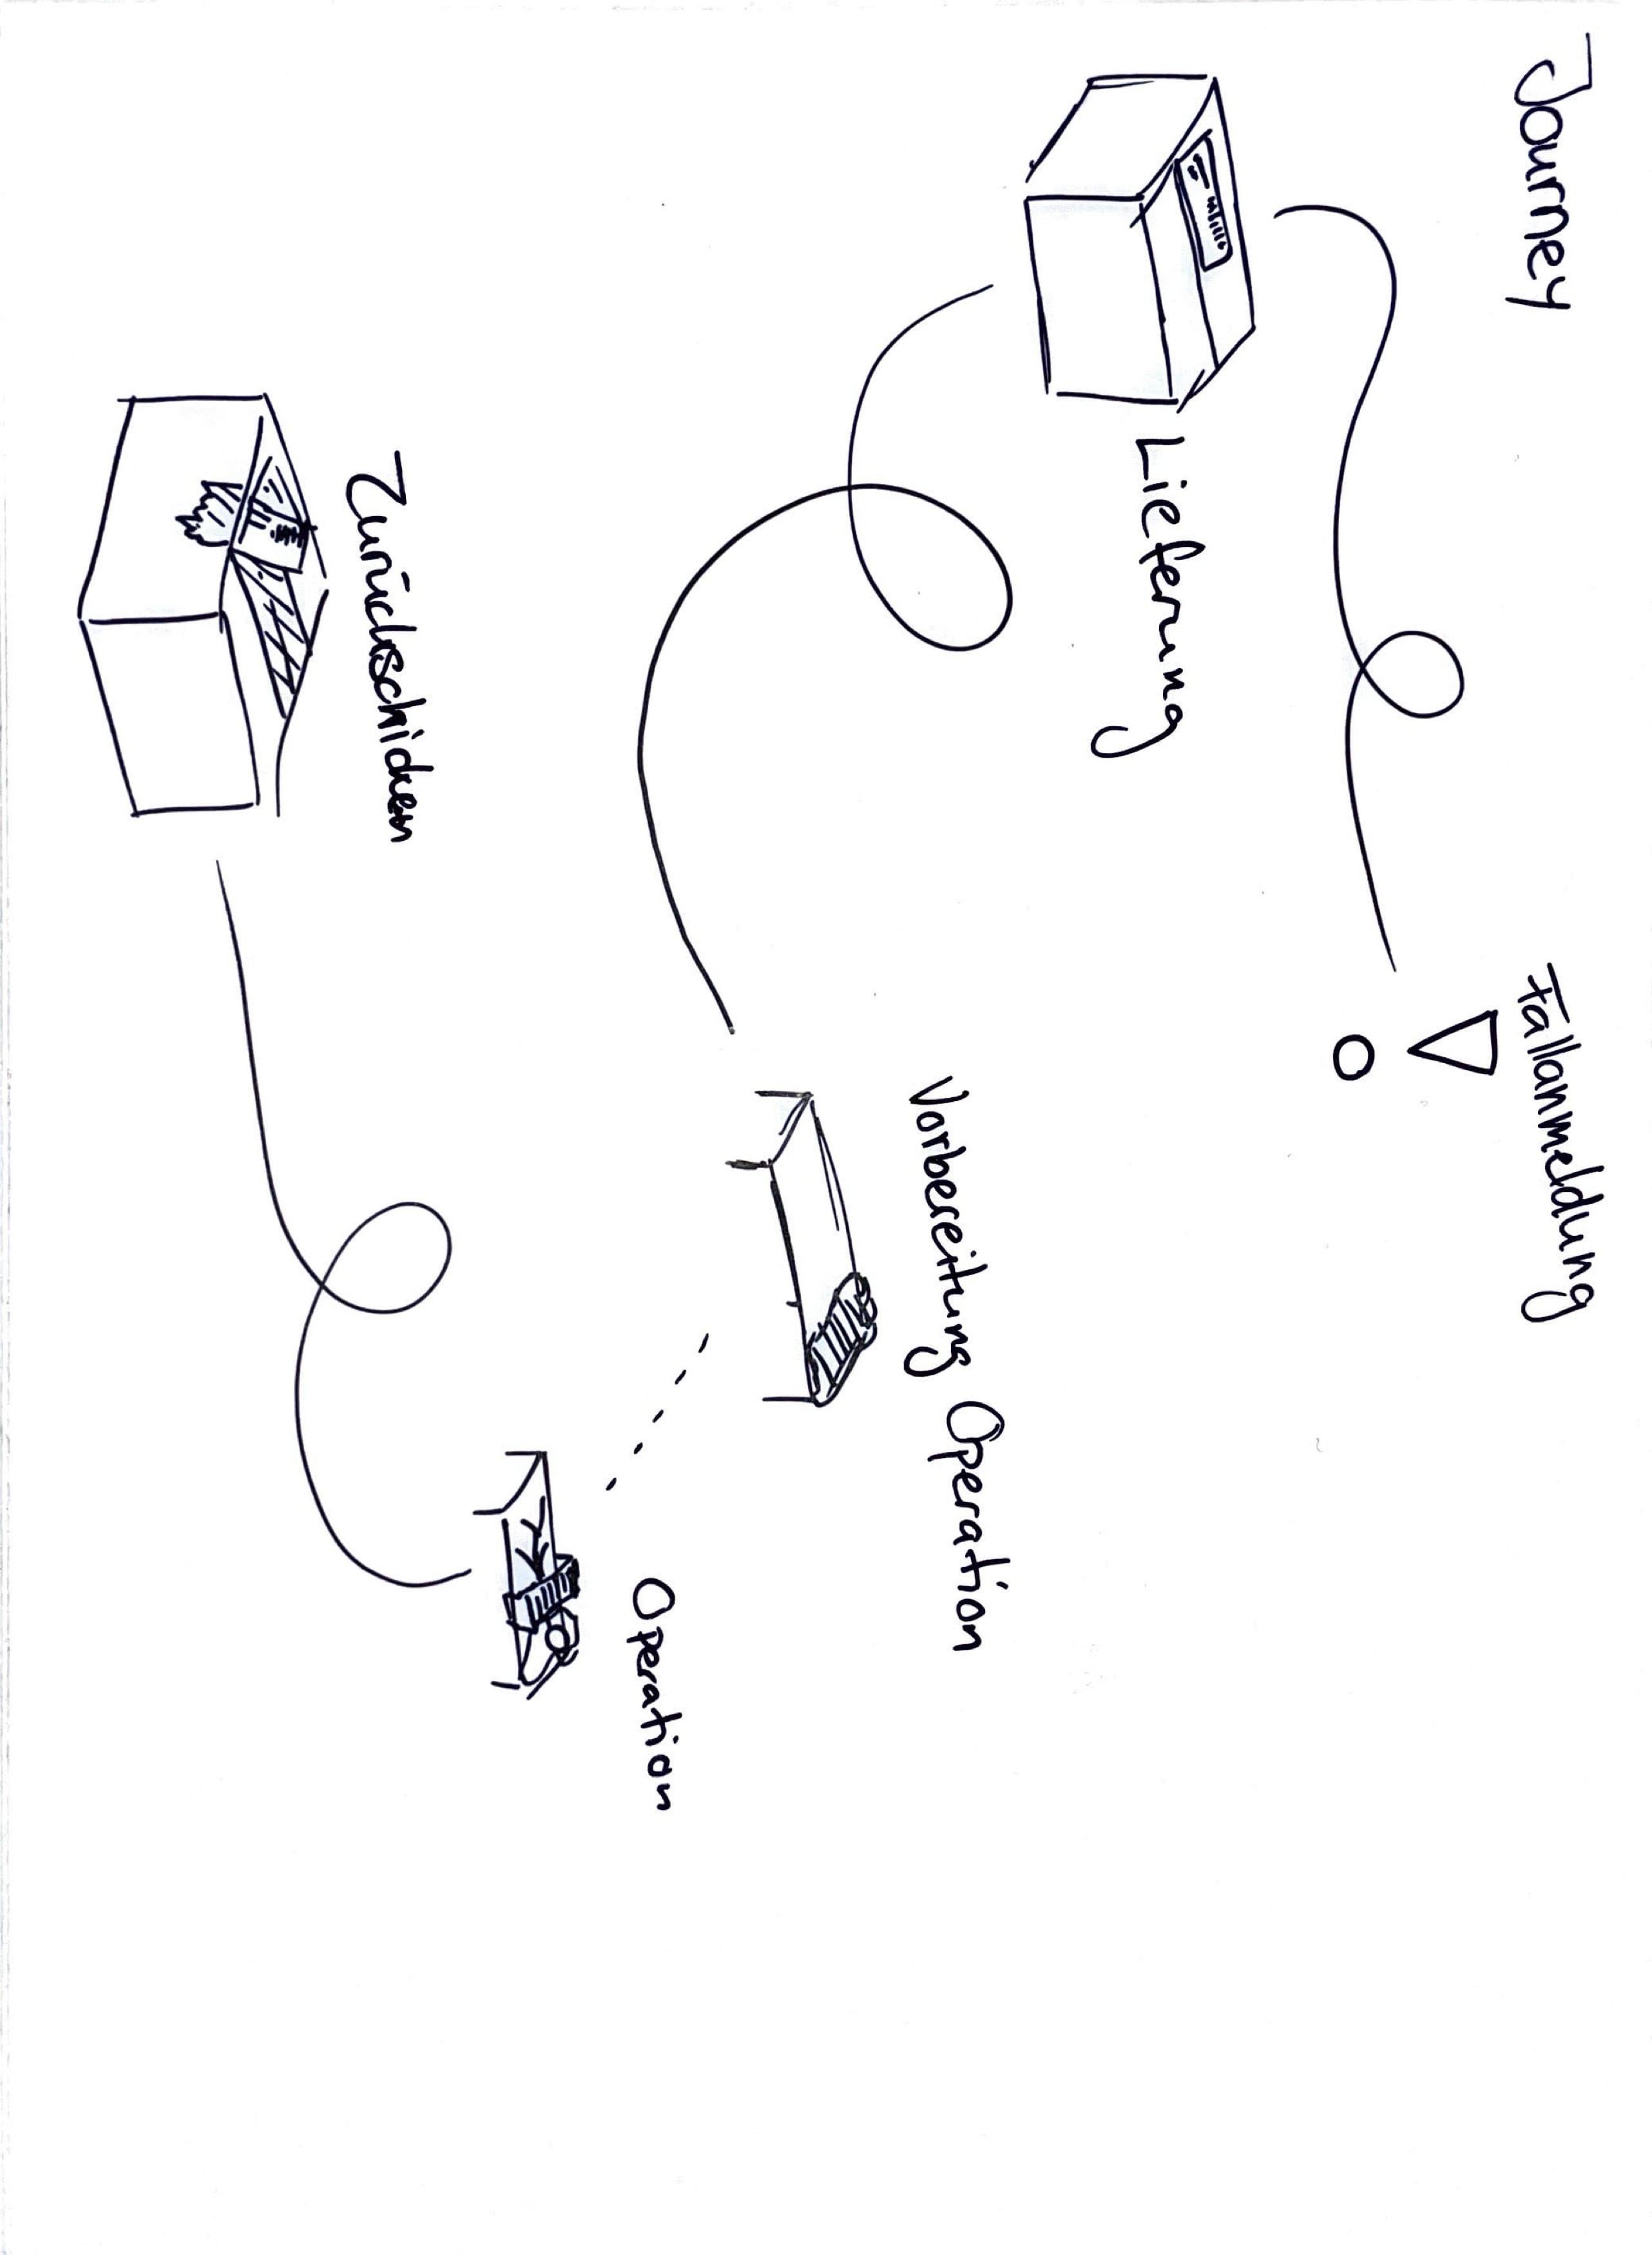 Journey
Fallanmeldung
Lieferung
Vorbereitung Operation
Operation
Zurückschicken